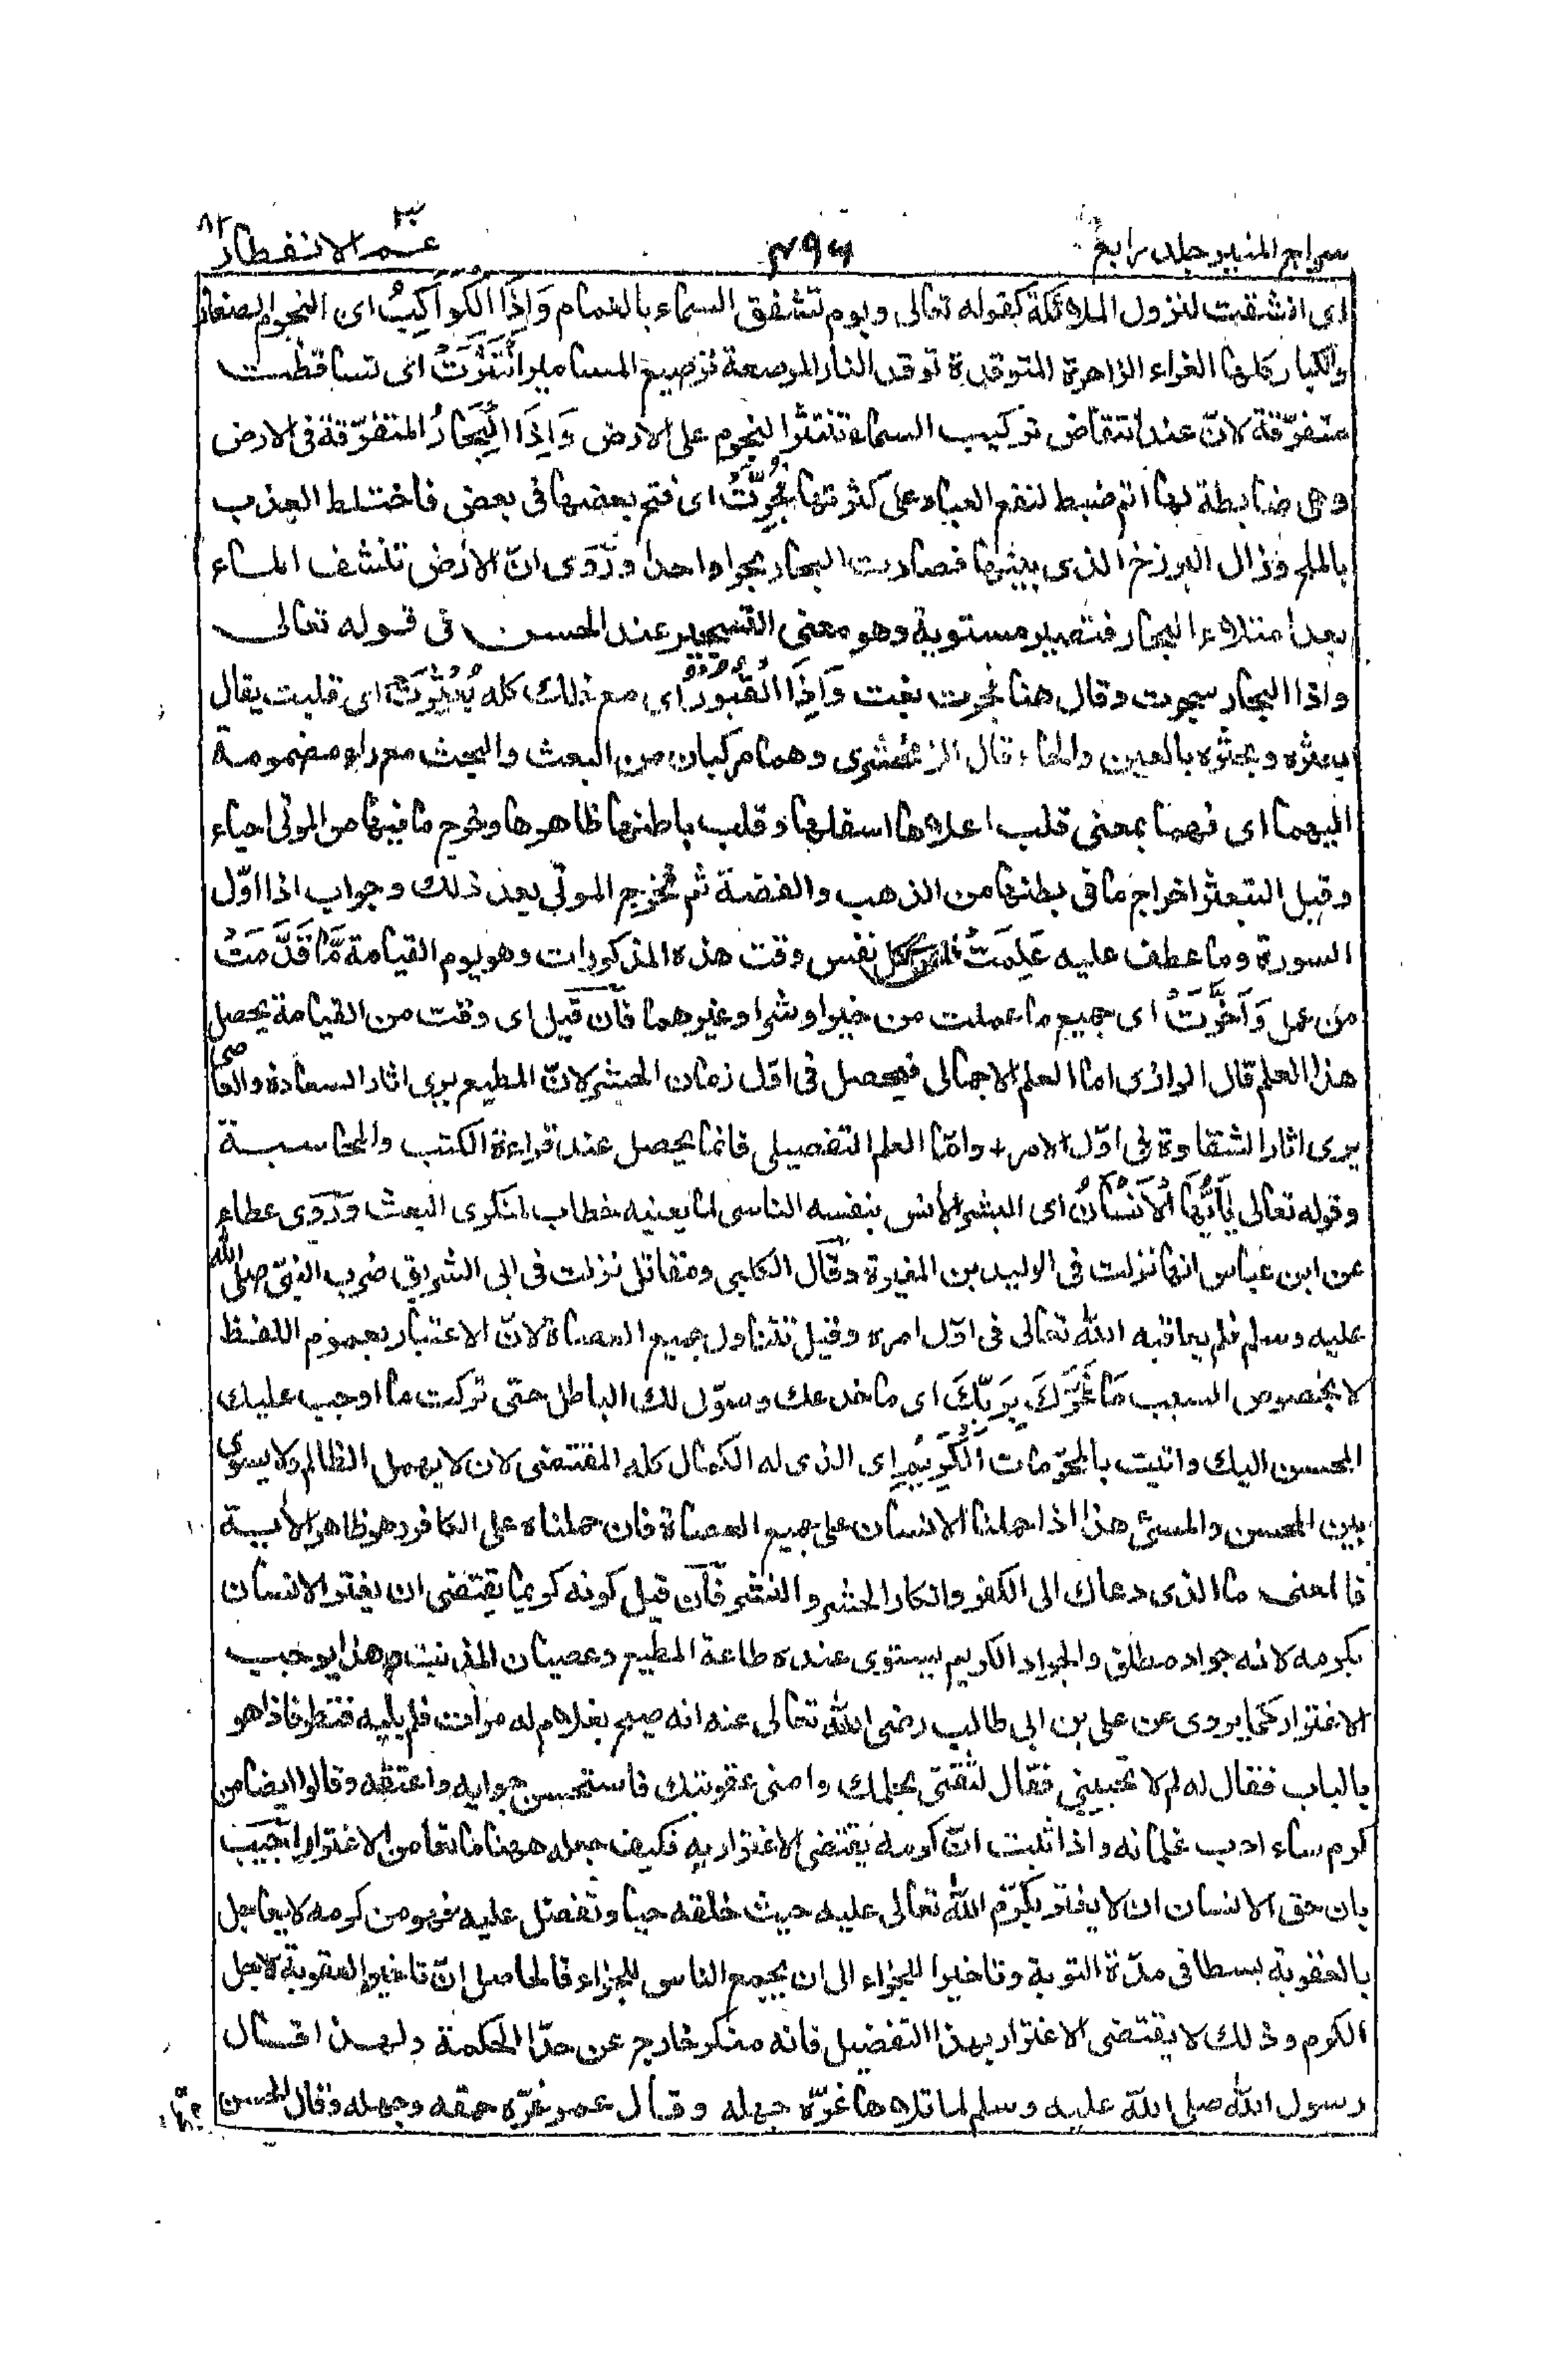 سراج المنير جلد رابع
۴۹۶
عــم الانفطار ۸۲
۳۰
اى انشقت لنزول الملائكة كقوله تعالى ويوم تشقق السماء بالغمام وَاِذَا الْكَوَاكِبُ اى النجوم الصغار
والكبار كلها الغراء الزاهرة المتوقدة توقد النار المرصعة ترصيع المسامير انْتَثَرَتْ اى تساقطت
متفرّقة لانّ عند انتقاض تركيب السماء تنتثر النجوم على الارض وَاِذَا الْبِحَارُ المتفرّقة فى الارض
وهى ضابطة لها اتم ضبط لنفع العباد على كثرتها فُجِّرَتْ اى فتح بعضها فى بعض فاختلط العذب
بالملح وزال البرزخ الذى بينهما فصارت البحار بحرا واحدا وروى انّ الارض تنشف الماء
بعد امتلاء البحار فتصير مستوية وهو معنى التسجير عند الحسن فى قوله تعالى
واذا البحار سجرت وقال هنا فجرت بغت وَاِذَا الْقُبُوْرُ اي مع ذلك كله بُعْثِرَتْ اى قلبت يقال
بعثره وبحثره بالعين والحاء قال الزمخشرى وهما مركبان من البعث والبحث مع راء مضمومة
اليهما اى فهما بمعنى قلب اعلاها اسفلها وقلب باطنها ظاهرها وخرج ما فيها من الموتى احياء
وقيل التبعثر اخراج ما فى بطنها من الذهب والفضة ثم تخرج الموتى بعد ذلك وجواب اذا اوّل
السورة وما عطف عليه عَلِمَتْ نفس كل نفس وقت هذه المذكورات وهو يوم القيامة مَّا قَدَّمَتْ
من عمل وَاَخَّرَتْ اى جميع ما عملت من خير او شر او غيرهما فان قيل اى وقت من القيامة يحصل
هذا العلم قال الرازى اما العلم الاجمالى فيحصل فى اوّل زمان الحشر لانّ المطيع يرى اثار السعادة والعاصى
يرى اثار الشقاوة فى اوّل الامر وامّا العلم التفصيلى فانما يحصل عند قراءة الكتب والمحاسبة
وقوله تعالى يٰاَيُّهَا الْاِنْسَانُ اى البشر الانس بنفسه الناسى لما يعنيه خطاب لمنكرى البعث وروى عطاء
عن ابن عباس انها نزلت فى الوليد بن المغيرة وقال الكلبى ومقاتل نزلت فى ابى الشريق ضرب النبىّ صلى الله
عليه وسلم فلم يعاقبه الله تعالى فى اوّل امره وقيل تتناول جميع العصاة لانّ الاعتبار بعموم اللفظ
لا بخصوص السبب مَا غَرَّكَ بِرَبِّكَ اى ما خدعك وسوّل لك الباطل حتى تركت ما اوجب عليك
المحسن اليك واتيت بالمحرّمات الْكَرِيْمِ اى الذى له الكمال كله المقتضى لان لا يهمل الظالم ولا يسوى
بين المحسن والمسئ هذا اذا حملنا الانسان على جميع العصاة فان حملناه على الكافر وهو ظاهر الاية
فالمعنى ما الذى دعاك الى الكفر وانكار الحشر والنشر فان قيل كونه كريما يقتضى ان يغتر الانسان
بكرمه لانه جواد مطلق والجواد الكريم يستوى عنده طاعة المطيع وعصيان المذنب وهذا يوجب
الاغترار كما يروى عن على بن ابى طالب رضى الله تعالى عنه انه صيح بغلام له مرات فلم يلبه فنظر فاذا هو
بالباب فقال له لم لا تجيبنى فقال لثقتى بحلمك وامنى عقوبتك فاستحسن جوابه واعتقه وقالوا ايضا من
كرم ساء ادب غلمانه واذا ثبت انّ كرمه يقتضى الاغترار به فكيف جعله ههنا مانعا من الاغترار اجيب
بان حق الانسان ان لا يغتر بكرم الله تعالى عليه حيث خلقه حيا وتفضل عليه فهو من كرمه لا يعاجل
بالعقوبة بسطا فى مدّة التوبة وتاخيرا للجزاء الى ان يجمع الناس للجزاء فالحاصل انّ تاخير العقوبة لاجل
الكرم وذلك لا يقتضى الاغترار بهذا التفضيل فانه منكر خارج عن حدّ الحكمة ولهذا قال
رسول الله صلى الله عليه وسلم لما تلاها غرّه جهله وقال عمر غرّه حمقه وجهله وقال الحسن